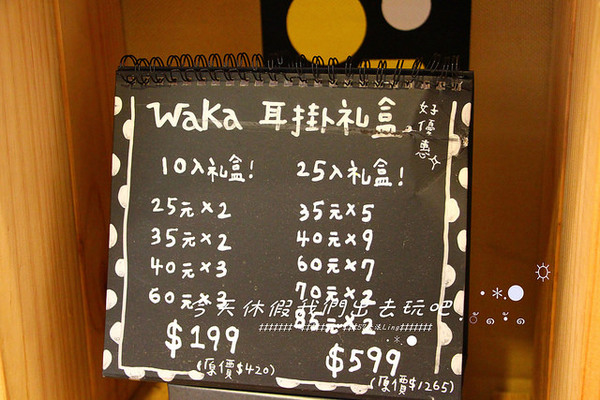 Waka 耳掛礼盒
好優惠
10入礼盒!
25元×2
35元×2
40元×3
60元×3
$199
(原價$420)
25入礼盒!
35元×5
40元×9
60元×7
70元×2
85元×2
$599
(原價$1265)
今天休假我們出去玩吧.
Ling#######